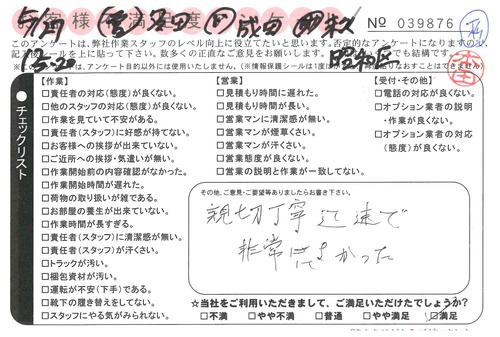 5/29
お客様満足度
No 039876
このアンケートは、弊社作業スタッフのレベル向上に役立てたいと思います。否定的なアンケートになりますので、
昭和区
チェックリスト
【作業】
□責任者の対応(態度)が良くない。
□他のスタッフの対応(態度)が良くない。
□作業を見ていて不安がある。
□責任者(スタッフ)に好感が持てない。
□お客様への挨拶が出来ていない。
□ご近所への挨拶・気遣いが無い。
□作業開始前の内容確認がなかった。
□作業開始時間が遅れた。
□荷物の取り扱いが雑である。
□お部屋の養生が出来ていない。
□作業時間が長すぎる。
□責任者(スタッフ)に清潔感が無い。
□責任者(スタッフ)が汗くさい。
□トラックが汚い。
□梱包資材が汚い。
□運転が不安(下手)である。
□靴下の履き替えをしてない。
□スタッフにやる気がみられない。
【営業】
□見積もり時間に遅れた。
□見積もり時間が長い。
□営業マンに清潔感が無い。
□営業マンが煙草くさい。
□営業マンが汗くさい。
□営業態度が良くない。
□営業の説明と作業が一致してない。
【受付・その他】
□電話の対応が良くない。
□オプション業者の説明
・作業が良くない。
□オプション業者の対応
(態度)が良くない。
その他、ご意見・ご要望等ありましたらお書き下さい。
親切丁寧迅速で
非常に良かった
☆当社をご利用いただきまして、ご満足いただけたでしょうか?
□不満 □やや不満 □普通 □やや満足 □満足